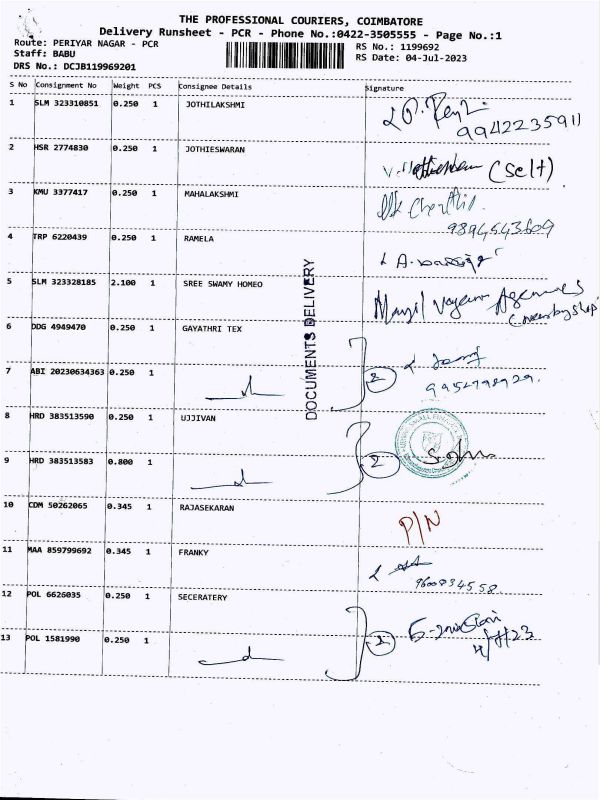 THE PROFESSIONAL COURIERS, COIMBATORE
Delivery Runsheet - PCR - Phone No.:0422-3505555 - Page No.:1
Route: PERIYAR NAGAR - PCR
RS No.: 1199692
Staff: BABU
RS Date: 04-Jul-2023
DRS No.: DCJB119969201
S No Consignment No Weight PCS Consignee Details Signature
1 SLM 323310851 0.250 1 JOTHILAKSHMI
9942235911
2 HSR 2774830 0.250 1 JOTHIESWARAN (Self)
3 KMU 3377417 0.250 1 MAHALAKSHMI
9894543609
4 TRP 6220439 0.250 1 RAMELA
5 SLM 323328185 2.100 1 SREE SWAMY HOMEO
6 DDG 4949470 0.250 1 GAYATHRI TEX
7 ABI 20230634363 0.250 1 2
DOCUMENTS DELIVERY
8 HRD 383513590 0.250 1 UJJIVAN
9 HRD 383513583 0.800 1 2
10 CDM 50262065 0.345 1 RAJASEKARAN P/N
11 MAA 859799692 0.345 1 FRANKY
12 POL 6626035 0.250 1 SECERATERY
13 POL 1581990 0.250 1 2